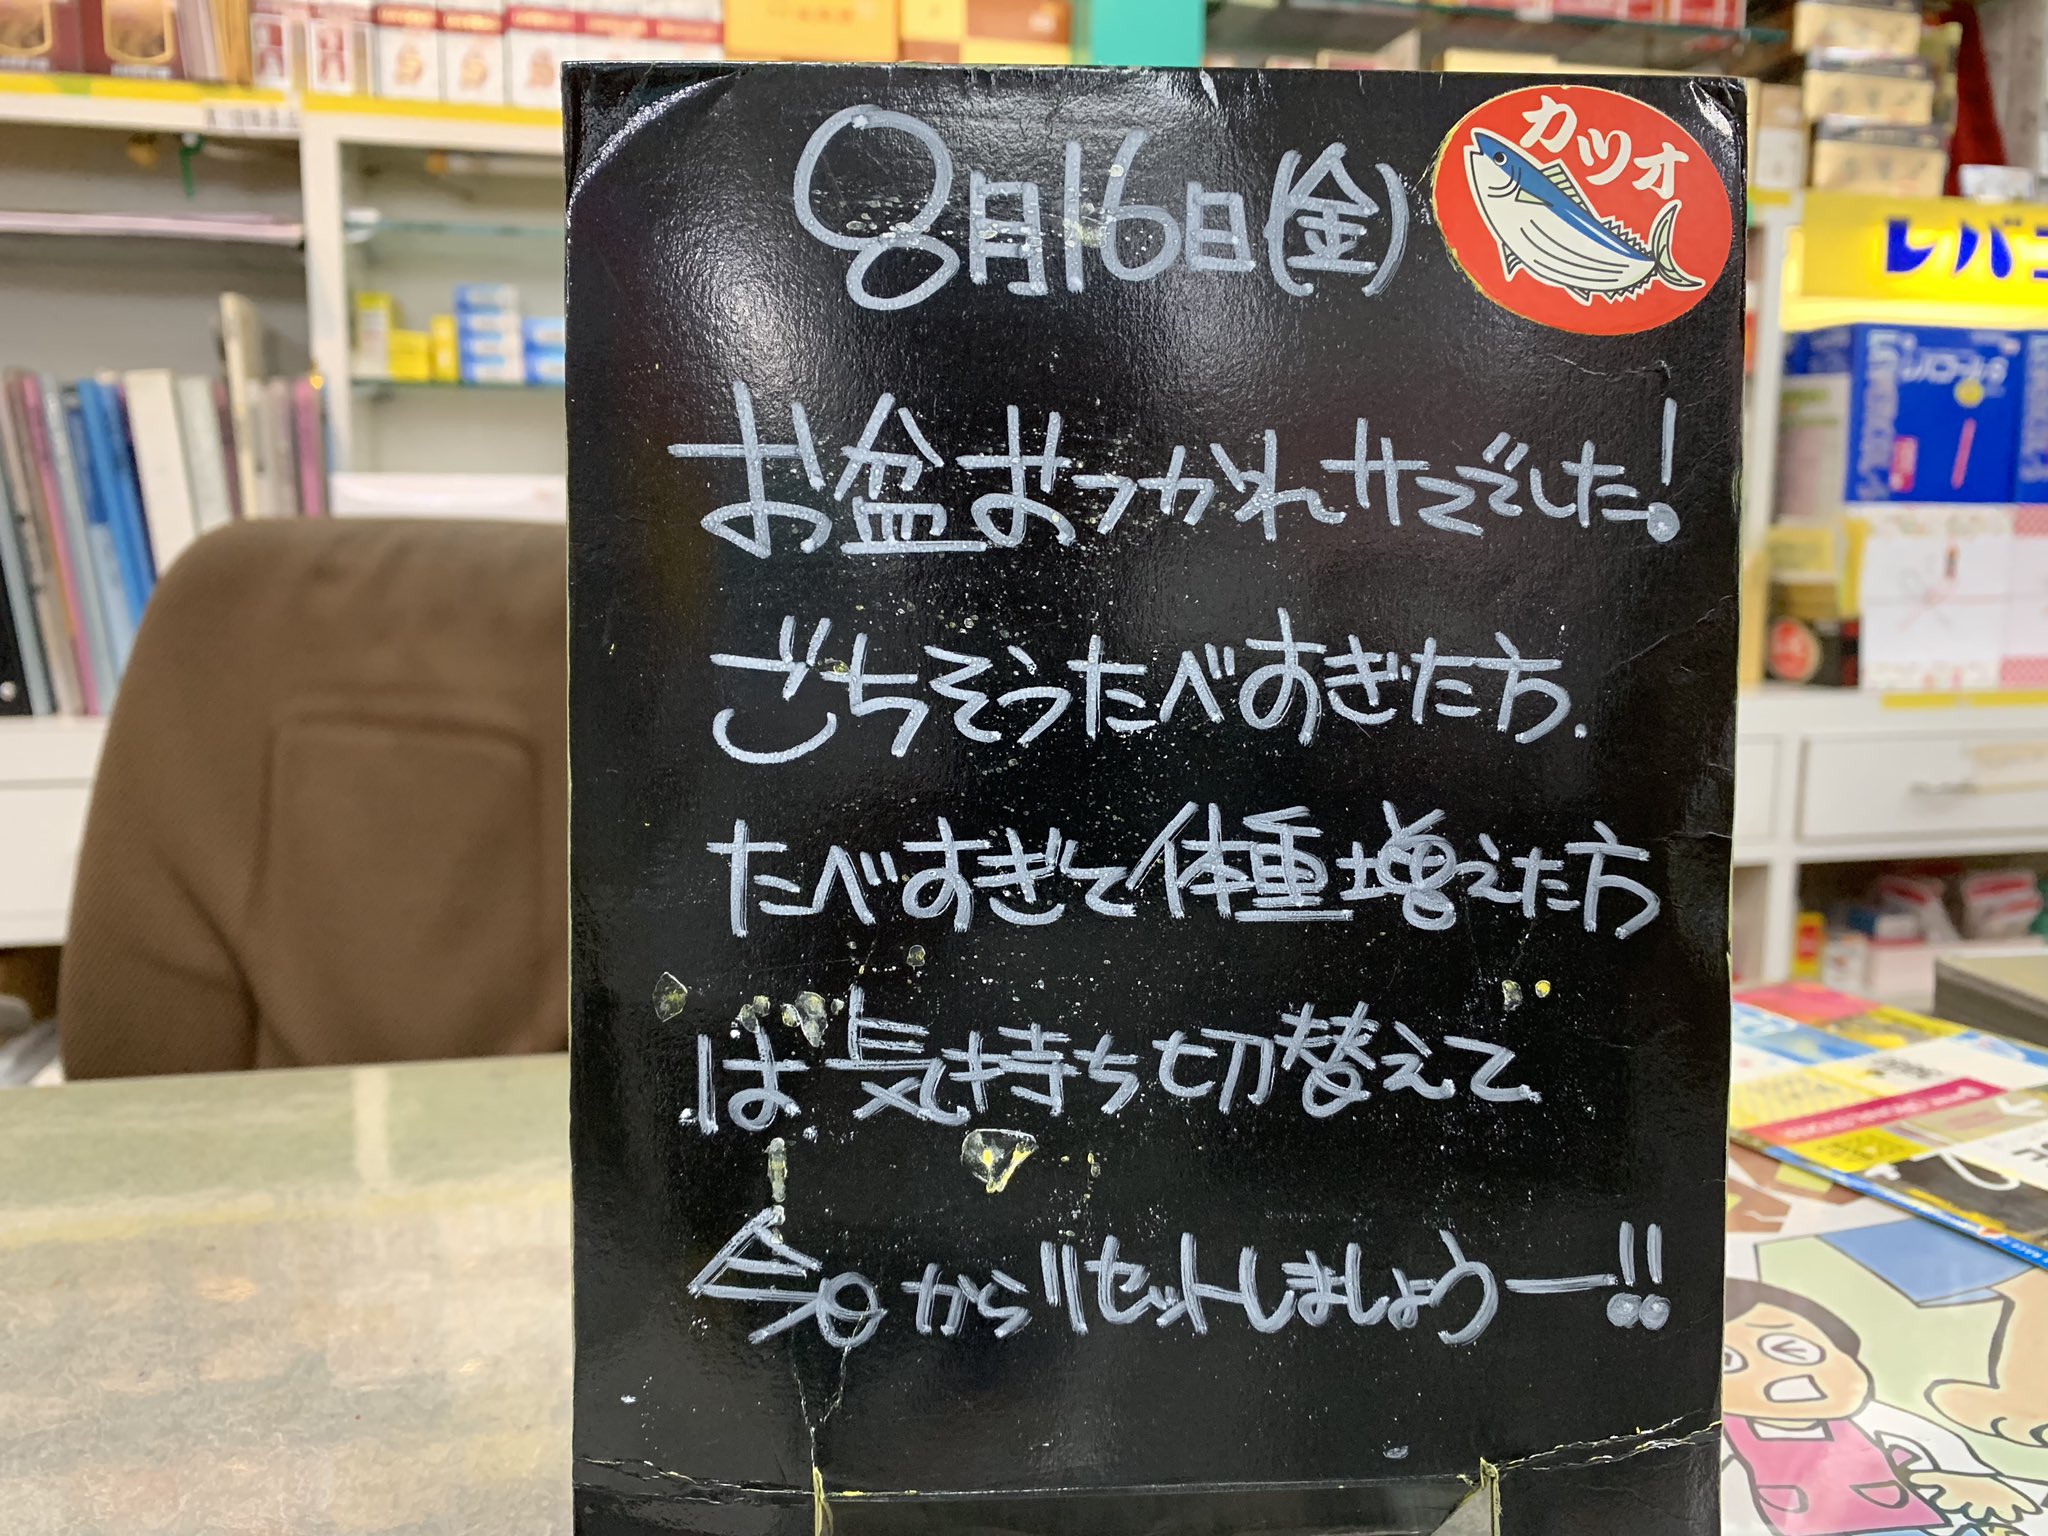 8月16日(金)
カツオ
お盆おつかれサマでした!
ごちそうたべすぎた方.
たべすぎて体重増えた方
は気持ち切替えて
今日からリセットしましょうー!!
レバコ
レバコールα